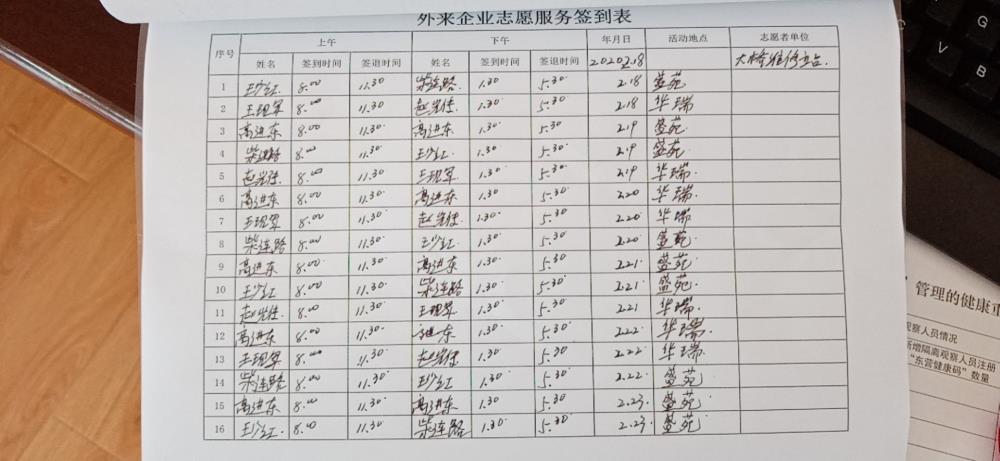 外来企业志愿服务签到表
序号 上午 下午 年月日 活动地点 志愿者单位
姓名 签到时间 签退时间 姓名 签到时间 签退时间 2020.2.18
1 王沙红 8.00 11.30 柴连路 1.30 5.30 2.18 盛苑
2 王现军 8.00 11.30 赵光佳 1.30 5.30 2.18 华瑞
3 高进东 8.00 11.30 高进东 1.30 5.30 2.19 盛苑
4 柴连路 8.00 11.30 王沙红 1.30 5.30 2.19 盛苑
5 赵光佳 8.00 11.30 王现军 1.30 5.30 2.19 华瑞
6 高进东 8.00 11.30 高进东 1.30 5.30 2.20 华瑞
7 王现军 8.00 11.30 赵光佳 1.30 5.30 2.20 华瑞
8 柴连路 8.00 11.30 王沙红 1.30 5.30 2.20 盛苑
9 高进东 8.00 11.30 高进东 1.30 5.30 2.21 盛苑
10 王沙红 8.00 11.30 柴连路 1.30 5.30 2.21 盛苑
11 赵光佳 8.00 11.30 王现军 1.30 5.30 2.21 华瑞
12 高进东 8.00 11.30 高进东 1.30 5.30 2.22 华瑞
13 王现军 8.00 11.30 赵光佳 1.30 5.30 2.22 华瑞
14 柴连路 8.00 11.30 王沙红 1.30 5.30 2.22 盛苑
15 高进东 8.00 11.30 高进东 1.30 5.30 2.23 盛苑
16 王沙红 8.00 11.30 柴连路 1.30 5.30 2.23 盛苑
G
V
B
管理的健康
观察人员情况
新增隔离观察人员注册
“东营健康码”数量